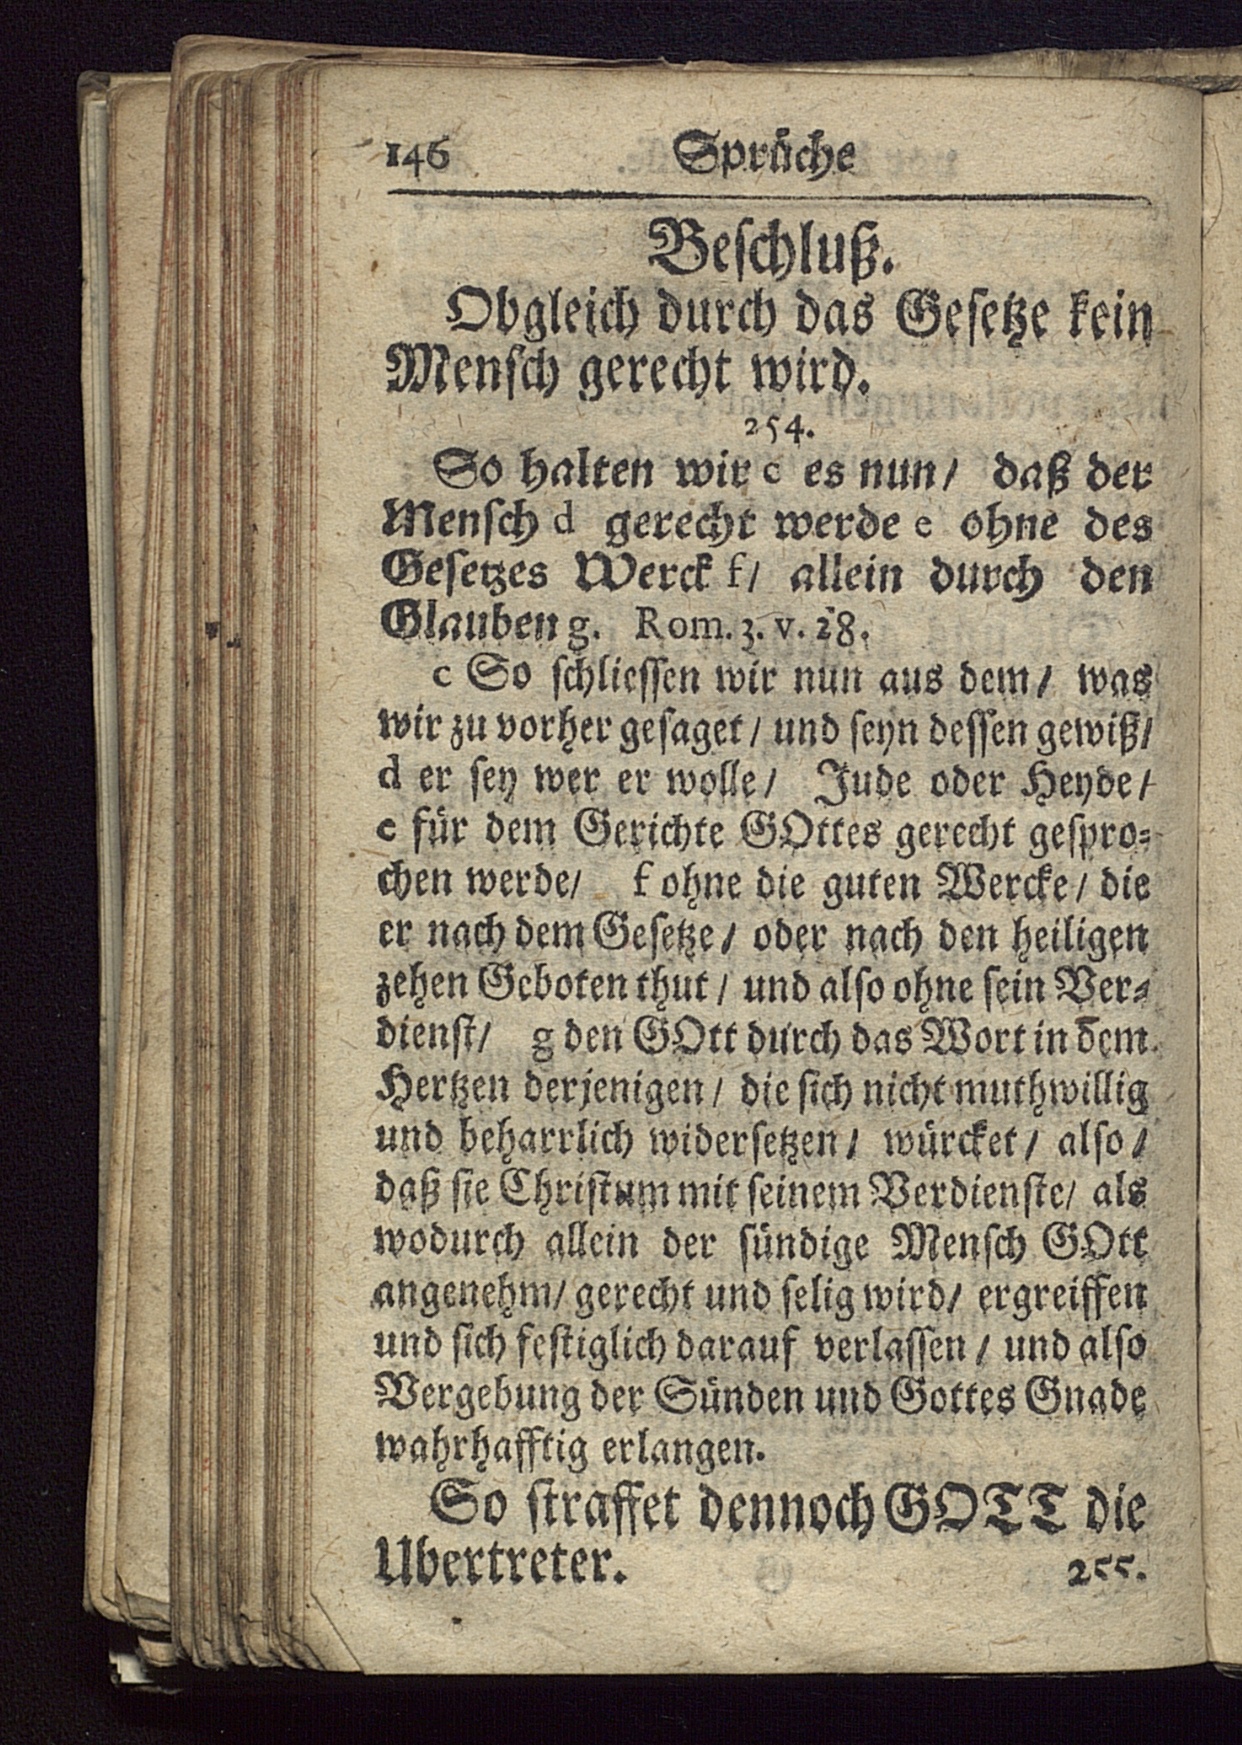 146 Sprüche
Beschluß.
Obgleich durch das Gesetze kein
Mensch gerecht wird.
254.
So halten wir c es nun/ daß der
Mensch d gerecht werde e ohne des
Gesetzes Werck f/ allein durch den
Glauben g. Rom. 3. v. 28.
c So schliessen wir nun aus dem/ was
wir zu vorher gesaget/ und seyn dessen gewiß/
d er sey wer er wolle/ Jude oder Heyde/
e für dem Gerichte GOttes gerecht gespro-
chen werde/ f ohne die guten Wercke/ die
er nach dem Gesetze/ oder nach den heiligen
zehen Geboten thut/ und also ohne sein Ver-
dienst/ g den GOtt durch das Wort in dem
Hertzen derjenigen/ die sich nicht muthwillig
und beharrlich widersetzen/ würcket/ also/
daß sie Christum mit seinem Verdienste/ als
wodurch allein der sündige Mensch GOtt
angenehm/ gerecht und selig wird/ ergreiffen
und sich festiglich darauf verlassen/ und also
Vergebung der Sünden und Gottes Gnade
wahrhafftig erlangen.
So straffet dennoch GOTT die
Ubertreter. 255.